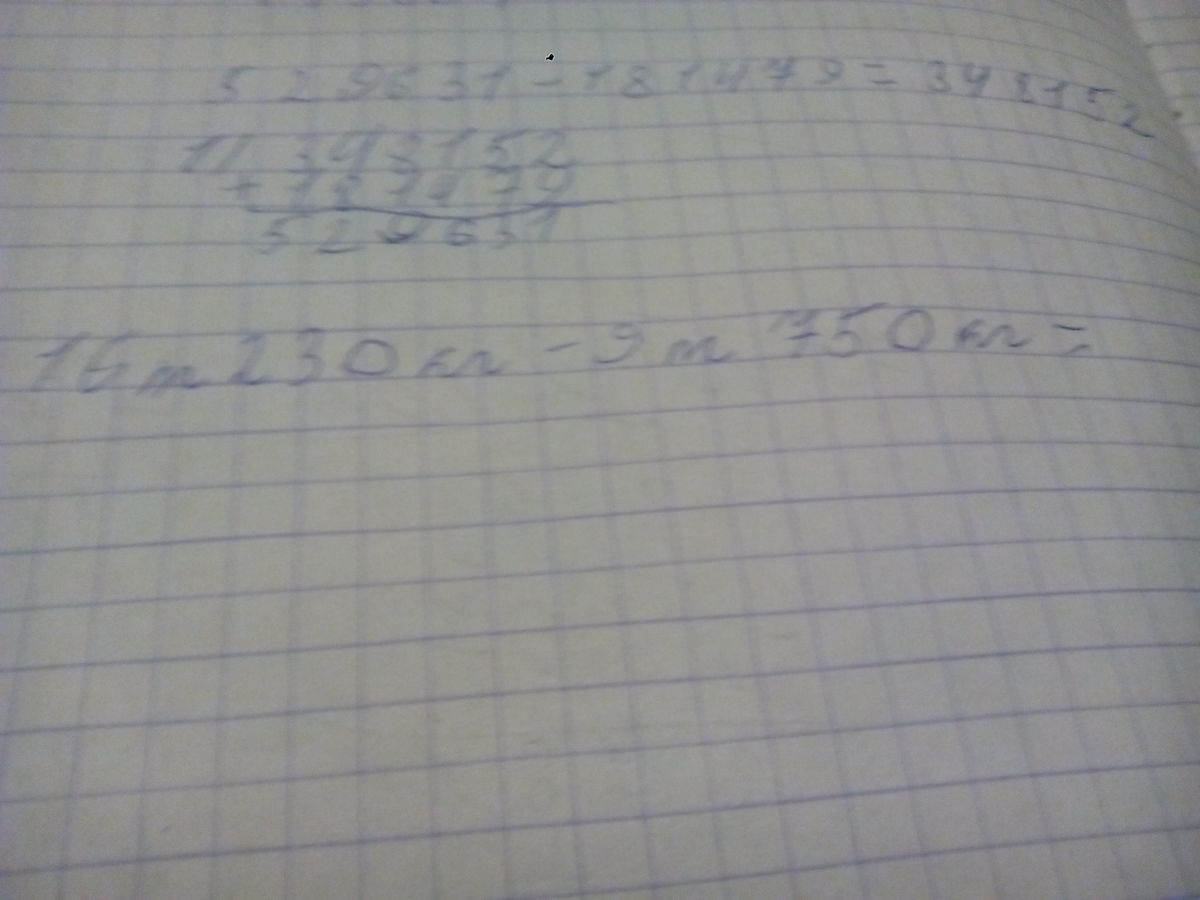 529631-181479=348152
11 348152
+ 181479
529631
16т230кг-9т 750кг=